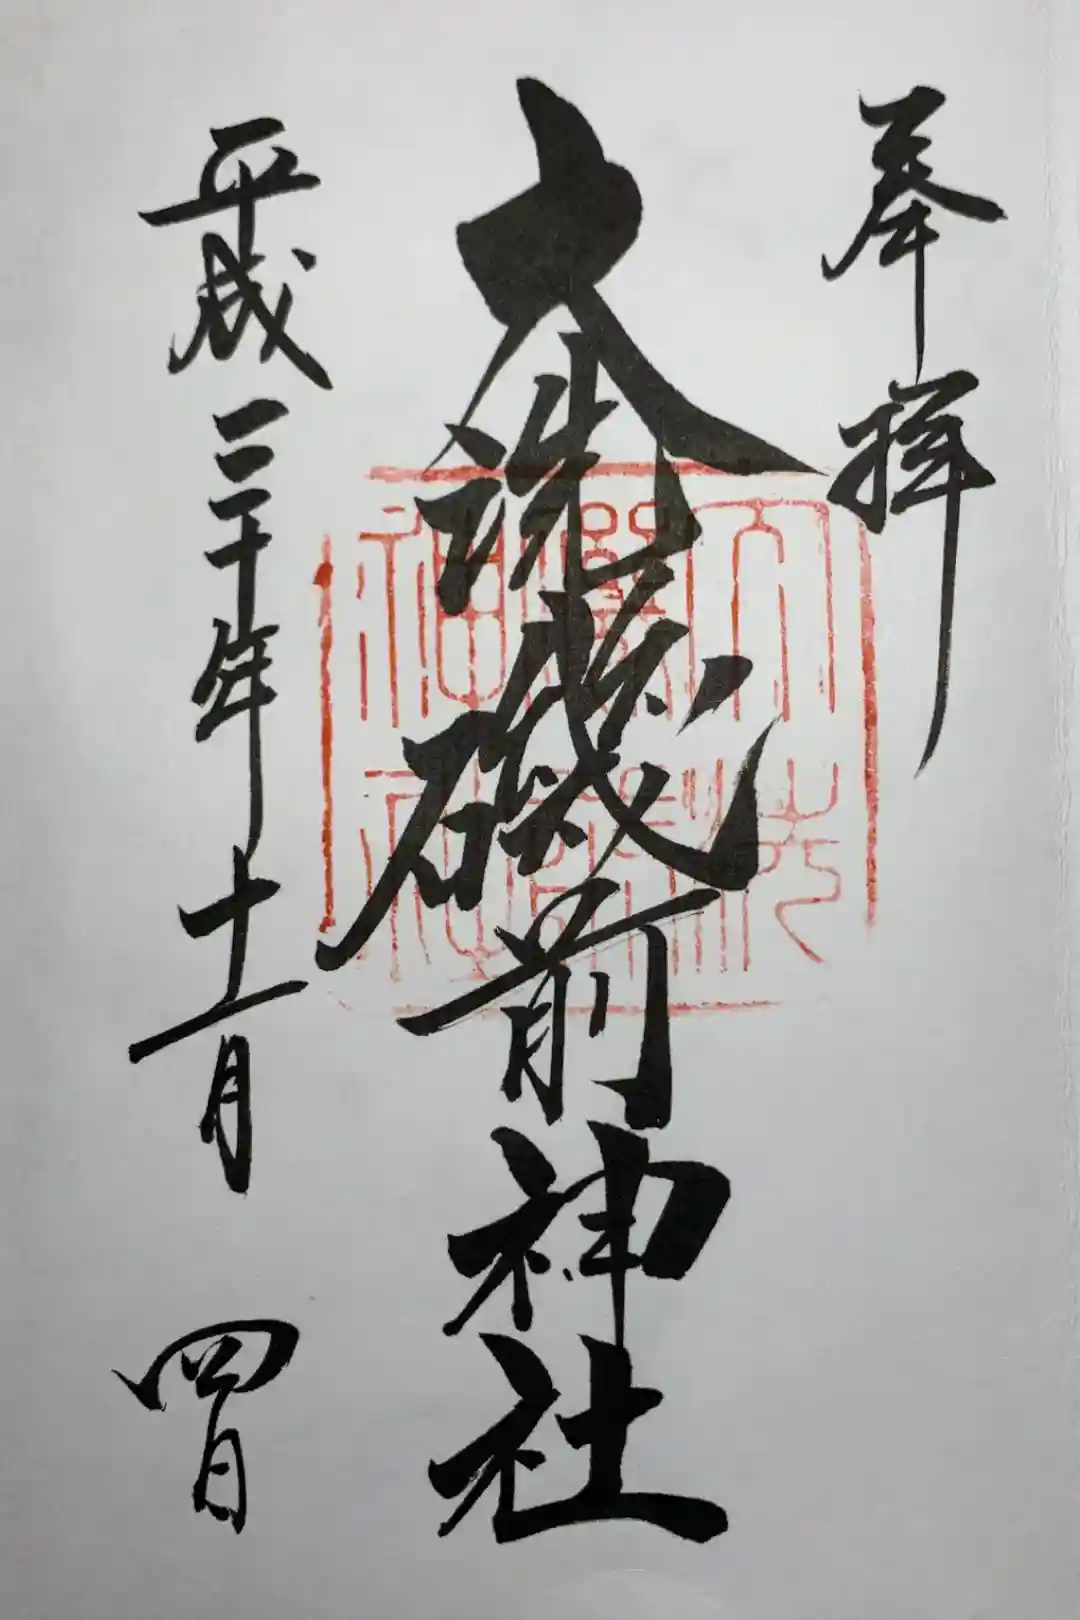 奉拝
大洗磯前神社
平成三十年十一月四日
大洗
磯前
神社